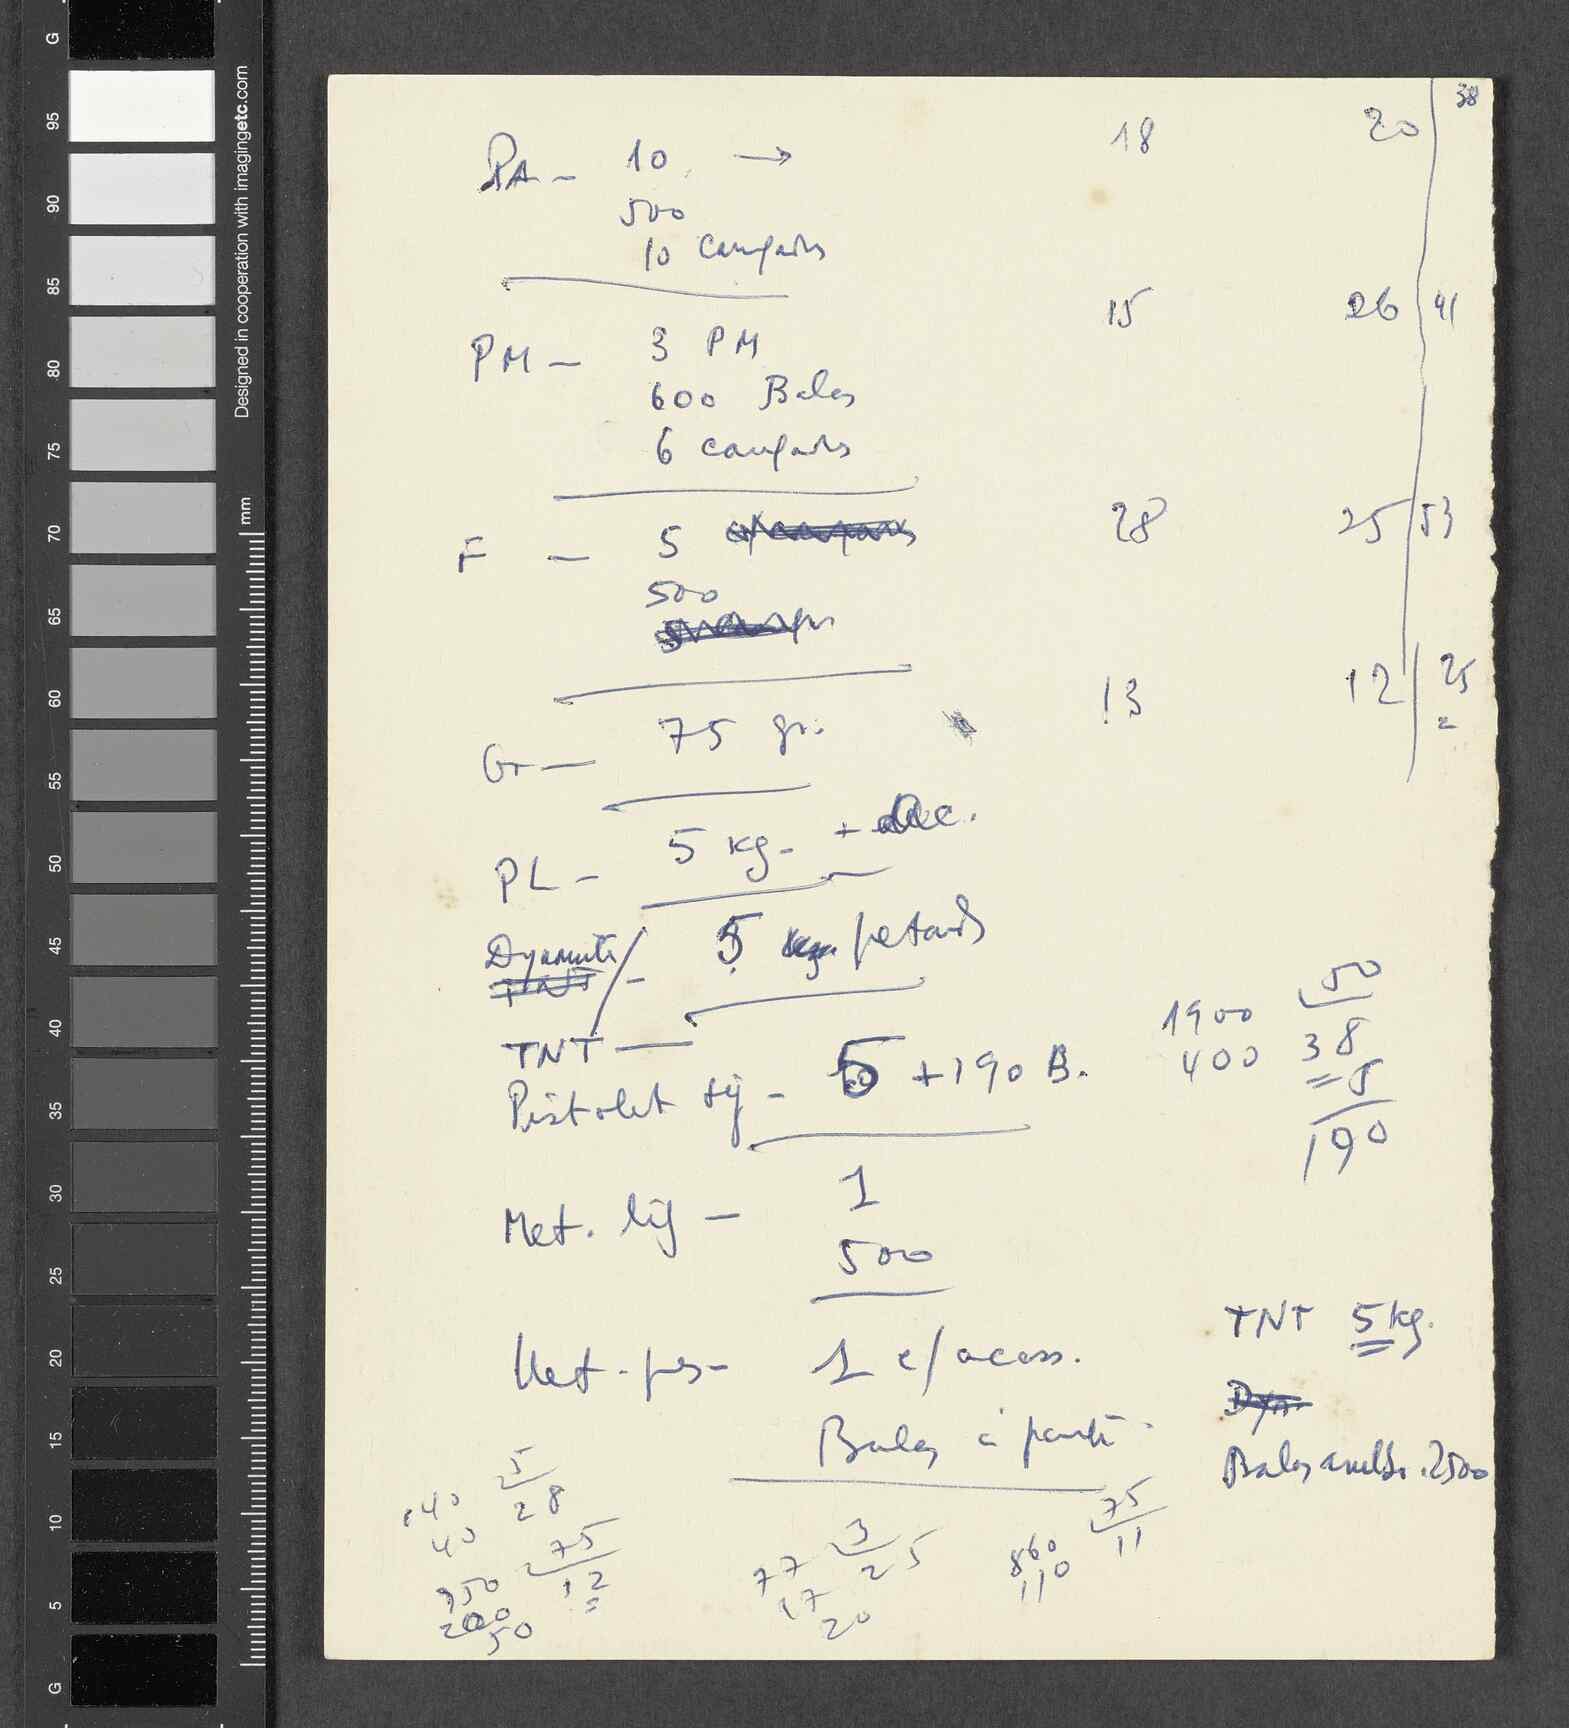 38
PA - 10 → 18 20
500
10 cargads
PM - 3 PM 15 26 41
600 Balas
6 cargads
F - 5 28 25 53
500
Gr - 75 gr. 13 12 25
PL - 5 kg - +
Dynamite
TNT - 5 petards
TNT —
Pistolet sig - 5 + 190 B.
1900 50
400 38
5
190
Met. lig - 1
500
Met. pes - 1 c/ acess.
Balas à partir
TNT 5 kg.
Dyn.
Balas 2500
140 5
40 28
950 75
200 12
50
77 3
17 25
20
860 75
110 11
G
95
90
85
80
75
70
65
60
55
50
45
40
35
30
25
20
15
10
5
G
Designed in cooperation with imagingetc.com
mm